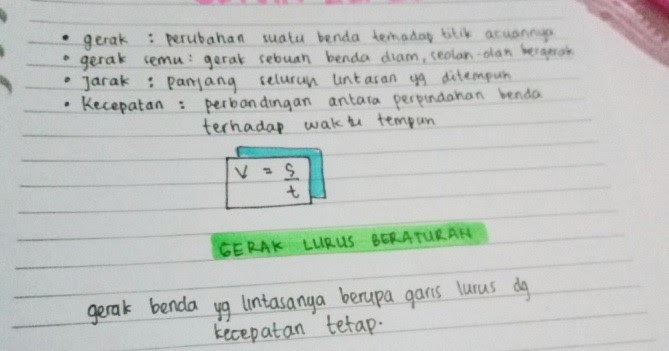 • gerak : perubahan suatu benda terhadap titik acuannya
• gerak semu : gerak sebuah benda diam, seolah-olah bergerak
• Jarak : panjang seluruh lintasan yg ditempuh
• Kecepatan : perbandingan antara perpindahan benda
terhadap waktu tempuh
V = s/t
GERAK LURUS BERATURAN
gerak benda yg lintasanya berupa garis lurus dg
kecepatan tetap.